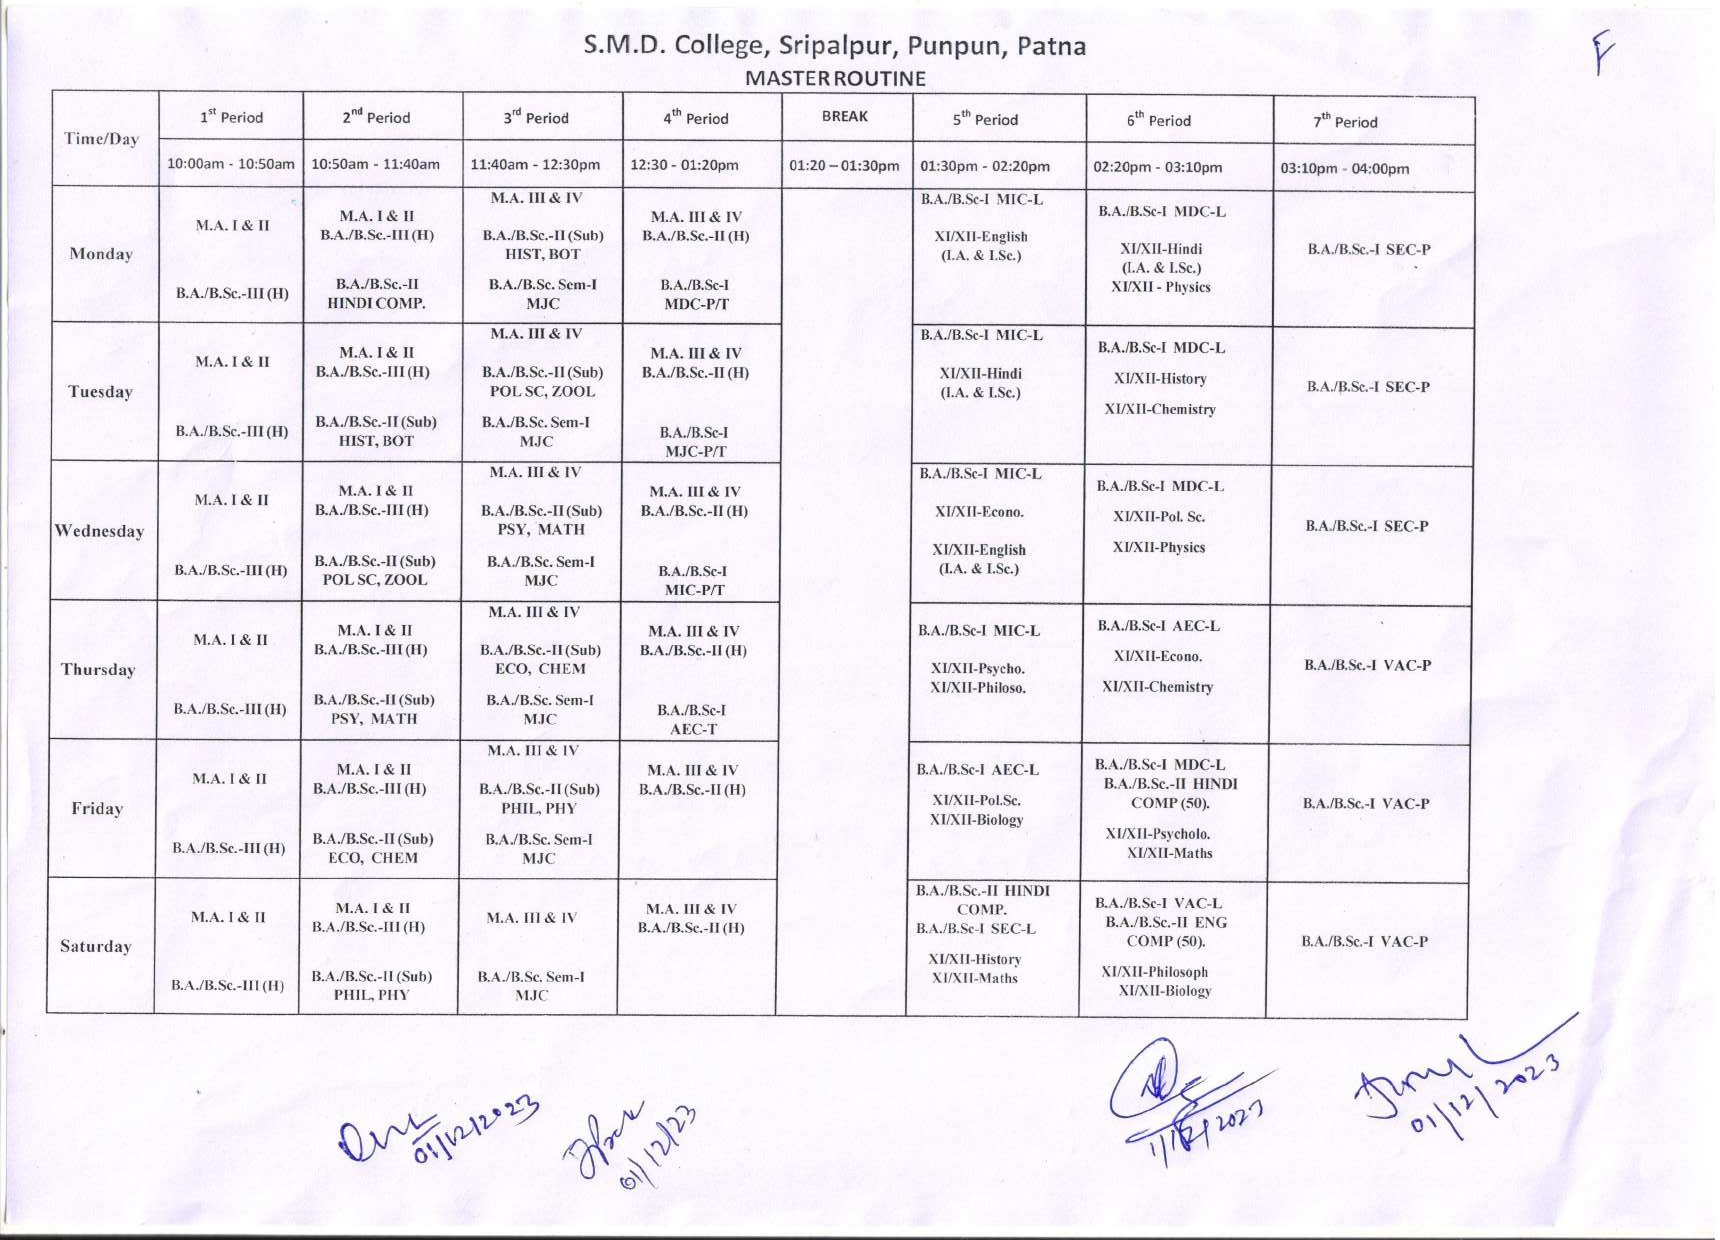 S.M.D. College, Sripalpur, Punpun, Patna
MASTER ROUTINE
Time/Day
1st Period
2nd Period
3rd Period
4th Period
BREAK
5th Period
6th Period
7th Period
10:00am - 10:50am
10:50am - 11:40am
11:40am - 12:30pm
12:30 - 01:20pm
01:20 – 01:30pm
01:30pm - 02:20pm
02:20pm - 03:10pm
03:10pm - 04:00pm
Monday
M.A. I & II
B.A./B.Sc.-III (H)
M.A. I & II
B.A./B.Sc.-III (H)
B.A./B.Sc.-II
HINDI COMP.
M.A. III & IV
B.A./B.Sc.-II (Sub)
HIST, BOT
B.A./B.Sc. Sem-I
MJC
M.A. III & IV
B.A./B.Sc.-II (H)
B.A./B.Sc-I
MDC-P/T
B.A./B.Sc-I MIC-L
XI/XII-English
(I.A. & I.Sc.)
B.A./B.Sc-I MDC-L
XI/XII-Hindi
(I.A. & I.Sc.)
XI/XII - Physics
B.A./B.Sc.-I SEC-P
Tuesday
M.A. I & II
B.A./B.Sc.-III (H)
M.A. I & II
B.A./B.Sc.-III (H)
B.A./B.Sc.-II (Sub)
HIST, BOT
M.A. III & IV
B.A./B.Sc.-II (Sub)
POL SC, ZOOL
B.A./B.Sc. Sem-I
MJC
M.A. III & IV
B.A./B.Sc.-II (H)
B.A./B.Sc-I
MJC-P/T
B.A./B.Sc-I MIC-L
XI/XII-Hindi
(I.A. & I.Sc.)
B.A./B.Sc-I MDC-L
XI/XII-History
XI/XII-Chemistry
B.A./B.Sc.-I SEC-P
Wednesday
M.A. I & II
B.A./B.Sc.-III (H)
M.A. I & II
B.A./B.Sc.-III (H)
B.A./B.Sc.-II (Sub)
POL SC, ZOOL
M.A. III & IV
B.A./B.Sc.-II (Sub)
PSY, MATH
B.A./B.Sc. Sem-I
MJC
M.A. III & IV
B.A./B.Sc.-II (H)
B.A./B.Sc-I
MIC-P/T
B.A./B.Sc-I MIC-L
XI/XII-Econo.
XI/XII-English
(I.A. & I.Sc.)
B.A./B.Sc-I MDC-L
XI/XII-Pol. Sc.
XI/XII-Physics
B.A./B.Sc.-I SEC-P
Thursday
M.A. I & II
B.A./B.Sc.-III (H)
M.A. I & II
B.A./B.Sc.-III (H)
B.A./B.Sc.-II (Sub)
PSY, MATH
M.A. III & IV
B.A./B.Sc.-II (Sub)
ECO, CHEM
B.A./B.Sc. Sem-I
MJC
M.A. III & IV
B.A./B.Sc.-II (H)
B.A./B.Sc-I
AEC-T
B.A./B.Sc-I MIC-L
XI/XII-Psycho.
XI/XII-Philoso.
B.A./B.Sc-I AEC-L
XI/XII-Econo.
XI/XII-Chemistry
B.A./B.Sc.-I VAC-P
Friday
M.A. I & II
B.A./B.Sc.-III (H)
M.A. I & II
B.A./B.Sc.-III (H)
B.A./B.Sc.-II (Sub)
ECO, CHEM
M.A. III & IV
B.A./B.Sc.-II (Sub)
PHIL, PHY
B.A./B.Sc. Sem-I
MJC
M.A. III & IV
B.A./B.Sc.-II (H)
B.A./B.Sc-I AEC-L
XI/XII-Pol.Sc.
XI/XII-Biology
B.A./B.Sc-I MDC-L
B.A./B.Sc.-II HINDI
COMP (50).
XI/XII-Psycholo.
XI/XII-Maths
B.A./B.Sc.-I VAC-P
Saturday
M.A. I & II
B.A./B.Sc.-III (H)
M.A. I & II
B.A./B.Sc.-III (H)
B.A./B.Sc.-II (Sub)
PHIL, PHY
M.A. III & IV
B.A./B.Sc. Sem-I
MJC
M.A. III & IV
B.A./B.Sc.-II (H)
B.A./B.Sc.-II HINDI
COMP.
B.A./B.Sc-I SEC-L
XI/XII-History
XI/XII-Maths
B.A./B.Sc-I VAC-L
B.A./B.Sc.-II ENG
COMP (50).
XI/XII-Philosoph
XI/XII-Biology
B.A./B.Sc.-I VAC-P
01/12/2023
01/12/23
1/12/2023
01/12/2023